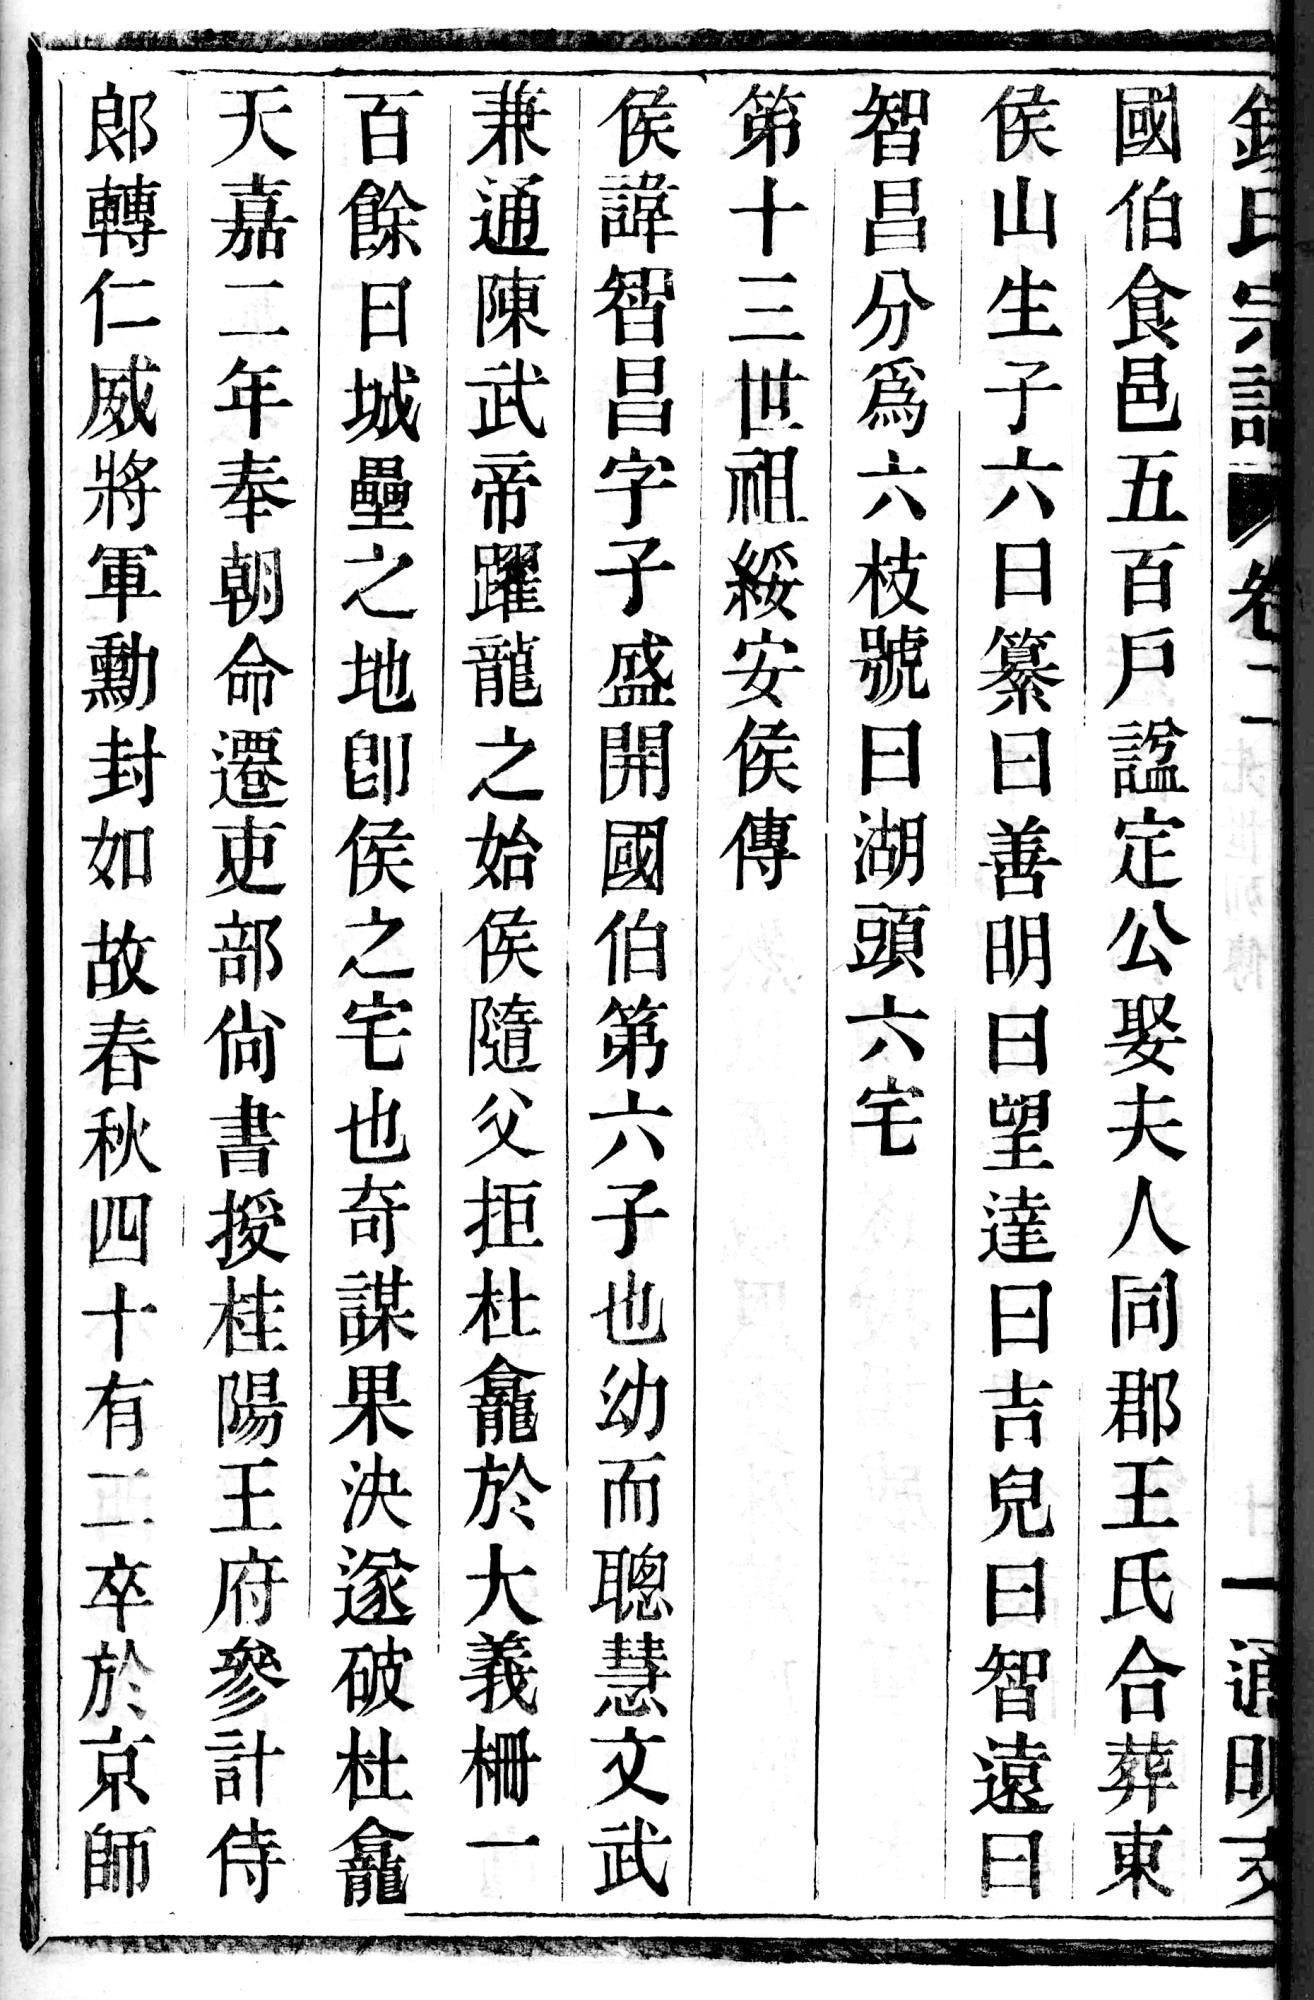 錢氏宗譜 卷二 一 通明支
國伯食邑五百戶諡定公娶夫人同郡王氏合葬東
侯山生子六曰纂曰善明曰望達曰吉兒曰智遠曰
智昌分爲六枝號曰湖頭六宅
第十三世祖綏安侯傳
侯諱智昌字子盛開國伯第六子也幼而聰慧文武
兼通陳武帝躍龍之始侯隨父拒杜龕於大義柵一
百餘日城壘之地卽侯之宅也奇謀果決遂破杜龕
天嘉二年奉朝命遷吏部尙書授桂陽王府參計侍
郎轉仁威將軍勳封如故春秋四十有二卒於京師